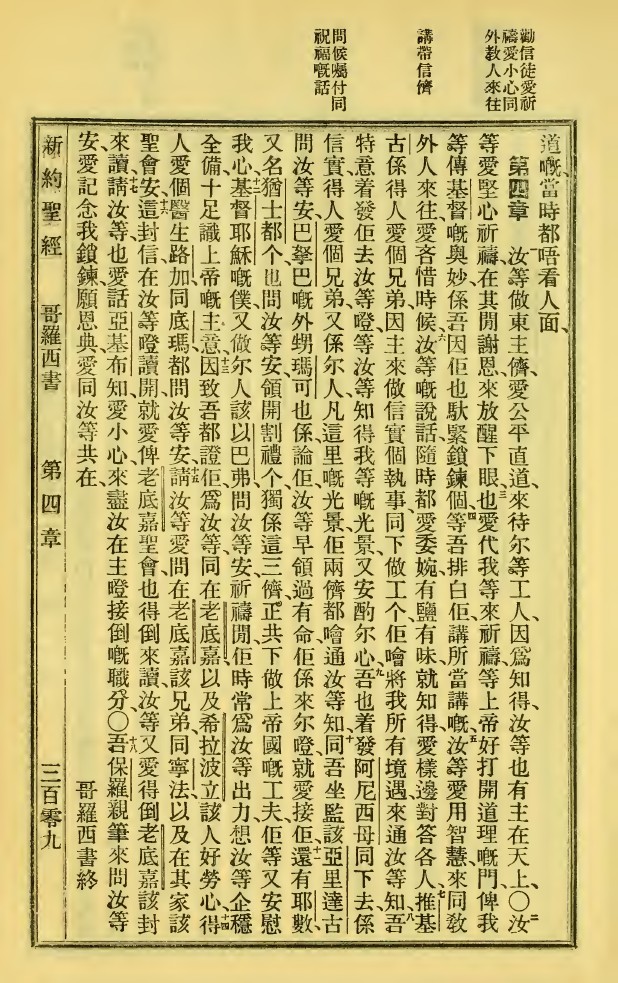 勸信徒愛祈
禱愛小心同
外教人來往
講帶信儕
問候囑付同
祝福嘅話
道嘅、當時都唔看人面、
第四章 汝等做東主儕愛公平直道來待尔等工人、因爲知得、汝等也有主在天上、〇二汝
等愛堅心祈禱、在其開謝恩、來放醒下眼也、三愛代我等來祈禱等上帝好打開道理嘅門、俾我
等傳基督嘅奧妙、係吾因佢也馱緊鎖鍊個、四等吾排白佢、講所當講嘅、五汝等愛用智慧、來同敎
外人來往、愛吝惜時候、六汝等嘅說話、隨時都愛委婉、有鹽有味、就知得、愛樣邊對答各人、七推基
古係得人愛個兄弟、因主來做信實個執事、同下做工个、佢噲將我所有境遇、來通汝等知、八吾
特意着發佢去汝等嶝、等汝等知得我等嘅光景、又安酌尔心、九吾也着發阿尼西母同下去、係
信實得人愛個兄弟、又係尔人、凡這里嘅光景、佢兩儕都噲通汝等知、十同吾坐監該亞里達古
問汝等安、巴拏巴嘅外甥瑪可也係、論佢、汝等早領過有命、佢係來尔嶝、就愛接佢、十一還有耶數、
又名猶士都个、也問汝等安、領開割禮个、獨係這三儕、正共下做上帝國嘅工夫、佢等又安慰
我心、十二基督耶穌嘅僕、又做尔人該以巴弗問汝等安、祈禱開、佢時常爲汝等出力、想汝等企穩
全備、十足識上帝嘅主意、十三因致吾都證佢、爲汝等同在老底嘉、以及希拉波立該人好勞心、十四得
人愛個醫生路加、同底瑪都問汝等安、十五請汝等愛問在老底嘉該兄弟、同寧法、以及在其家該
聖會安、十六這封信在汝等嶝讀開、就愛俾老底嘉聖會也得倒來讀、汝等又愛得倒老底嘉該封
來讀、十七請汝等也愛話亞基布知、愛小心來盡汝在主嶝接倒嘅職分、〇十八吾保羅親筆來問汝等
安、愛記念我鎖鍊、願恩典、愛同汝等共在、
哥羅西書終
新約聖經 哥羅西書 第四章 三百零九